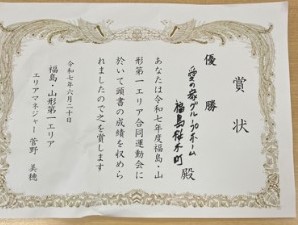 賞状
優勝
愛の家グループホーム
福島桜木町 殿
あなたは令和七年度福島・山
形第一エリア合同運動会に
於いて頭書の成績を収めら
れましたので之を賞します
令和七年六月二十日
福島・山形第一エリア
エリアマネジャー 菅野 美穂